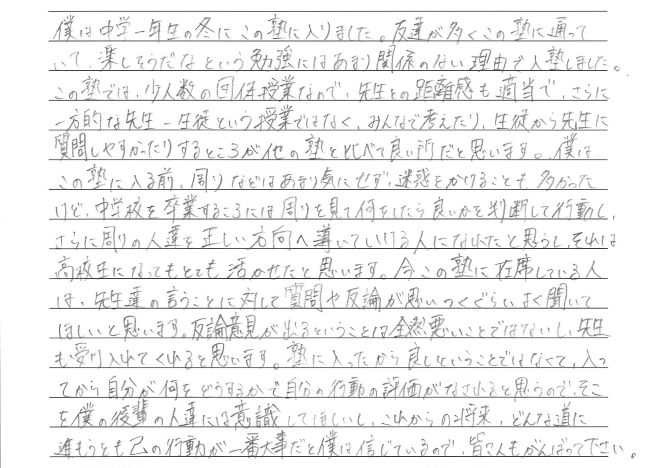 僕は中学一年生の冬にこの塾に入りました。友達が多くこの塾に通って
いて、楽しそうだなという勉強にはあまり関係のない理由で入塾しました。
この塾では、少人数の回伝授業なので、先生との距離感も適当で、さらに
一方的な先生－生徒という授業ではなく、みんなで考えたり、生徒から先生に
質問しやすかったりするところが他の塾と比べて良い所だと思います。僕は
この塾に入る前、周りなどはあまり気にせず、迷惑をかけることも多かった
けど、中学校を卒業するころには周りを見て何をしたら良いかを判断して行動し、
さらに周りの人達を正しい方向へ導いていける人になれたと思うし、それは
高校生になってもとても活かせたと思います。今この塾に在席している人
は、先生達の言うことに対して質問や反論が思いつくぐらいよく聞いて
ほしいと思います。反論意見が出るということは全然悪いことではないし、先生
も受け入れてくれると思います。塾に入ったから良いということではなくて、入っ
てから自分が何をどうするかで自分の行動の評価がなされると思うので、そこ
を僕の後輩の人達には意識してほしいし、これからの将来、どんな道に
進もうとも己の行動が一番大事だと僕は信じているので、皆さんもがんばって下さい。